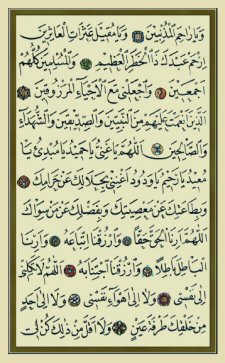 وَيَا رَاحِمَ الْمُذْنِبِينَ وَيَا مُقِيلَ عَثَرَاتِ الْعَاثِرِينَ
اِرْحَمْ عَبْدَكَ ذَا الْخَطَرِ الْعَظِيمِ وَالْمُسْلِمِينَ كُلَّهُمْ
اَجْمَعِينَ وَاجْعَلْنِي مَعَ الْاَحْيَاءِ الْمَرْزُوقِينَ
الَّذِينَ اَنْعَمْتَ عَلَيْهِمْ مِنَ النَّبِيِّينَ وَالصِّدِّيقِينَ وَالشُّهَدَاءِ
وَالصَّالِحِينَ اَللّٰهُمَّ يَا غَنِيُّ يَا حَمِيدُ يَا مُبْدِئُ يَا
مُعِيدُ يَا رَحِيمُ يَا وَدُودُ اَغْنِنِي بِحَلَالِكَ عَنْ حَرَامِكَ
وَبِطَاعَتِكَ عَنْ مَعْصِيَتِكَ وَبِفَضْلِكَ عَمَّنْ سِوَاكَ
اَللّٰهُمَّ اَرِنَا الْحَقَّ حَقًّا وَارْزُقْنَا اتِّبَاعَهُ وَاَرِنَا
الْبَاطِلَ بَاطِلًا وَارْزُقْنَا اجْتِنَابَهُ اَللّٰهُمَّ لَا تَكِلْنِي
اِلَى نَفْسِي وَلَا اِلَى هَوَاءِ نَفْسِي وَلَا اِلَى اَحَدٍ
مِنْ خَلْقِكَ طَرْفَةَ عَيْنٍ وَلَا اَقَلَّ مِنْ ذٰلِكَ كُنْ لِي